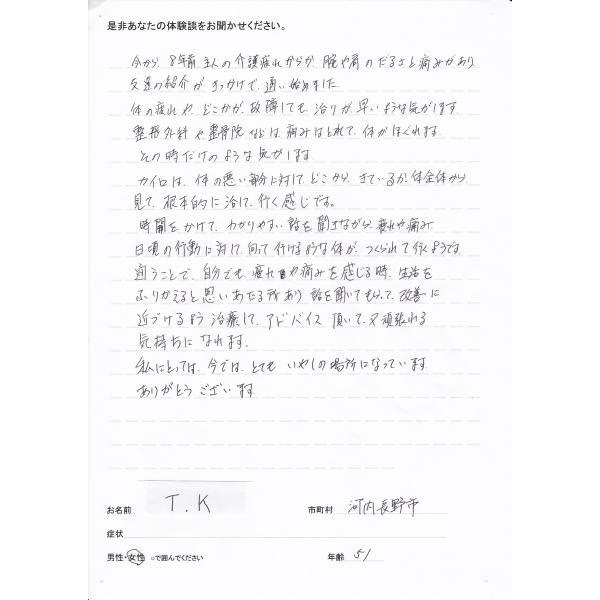 是非あなたの体験談をお聞かせください。
今から、8年前 主人の介護疲れからか 腕や肩のだるさと痛みがあり
友達の紹介がきっかけで、通い始めました
体の疲れや、どこかが、故障しても、治りが早いような気がします
整形外科や整骨院などは、痛みはとれて、体がほぐれます
その時だけのような気がします
カイロは、体の悪い部分に対して、どこから、きているか体全体から
見て、根本的に治して行く感じです。
時間をかけて、わかりやすい話を聞きながら、疲れや痛み
日頃の行動に対して、向って行けるような体が、つくられて行くようです
通うことで、自分でも、疲れや痛みを感じる時、生活を
ふりかえると思いあたる所あり 話を聞いてもらって、改善に
近づけるよう治療して、アドバイス 頂いて、又頑張れる
気持ちになれます。
私にとっては、今では、とても いやしの場所になっています
ありがとうございます
お名前 T.K 市町村 河内長野市
症状
男性・女性 ○で囲んでください 年齢 51